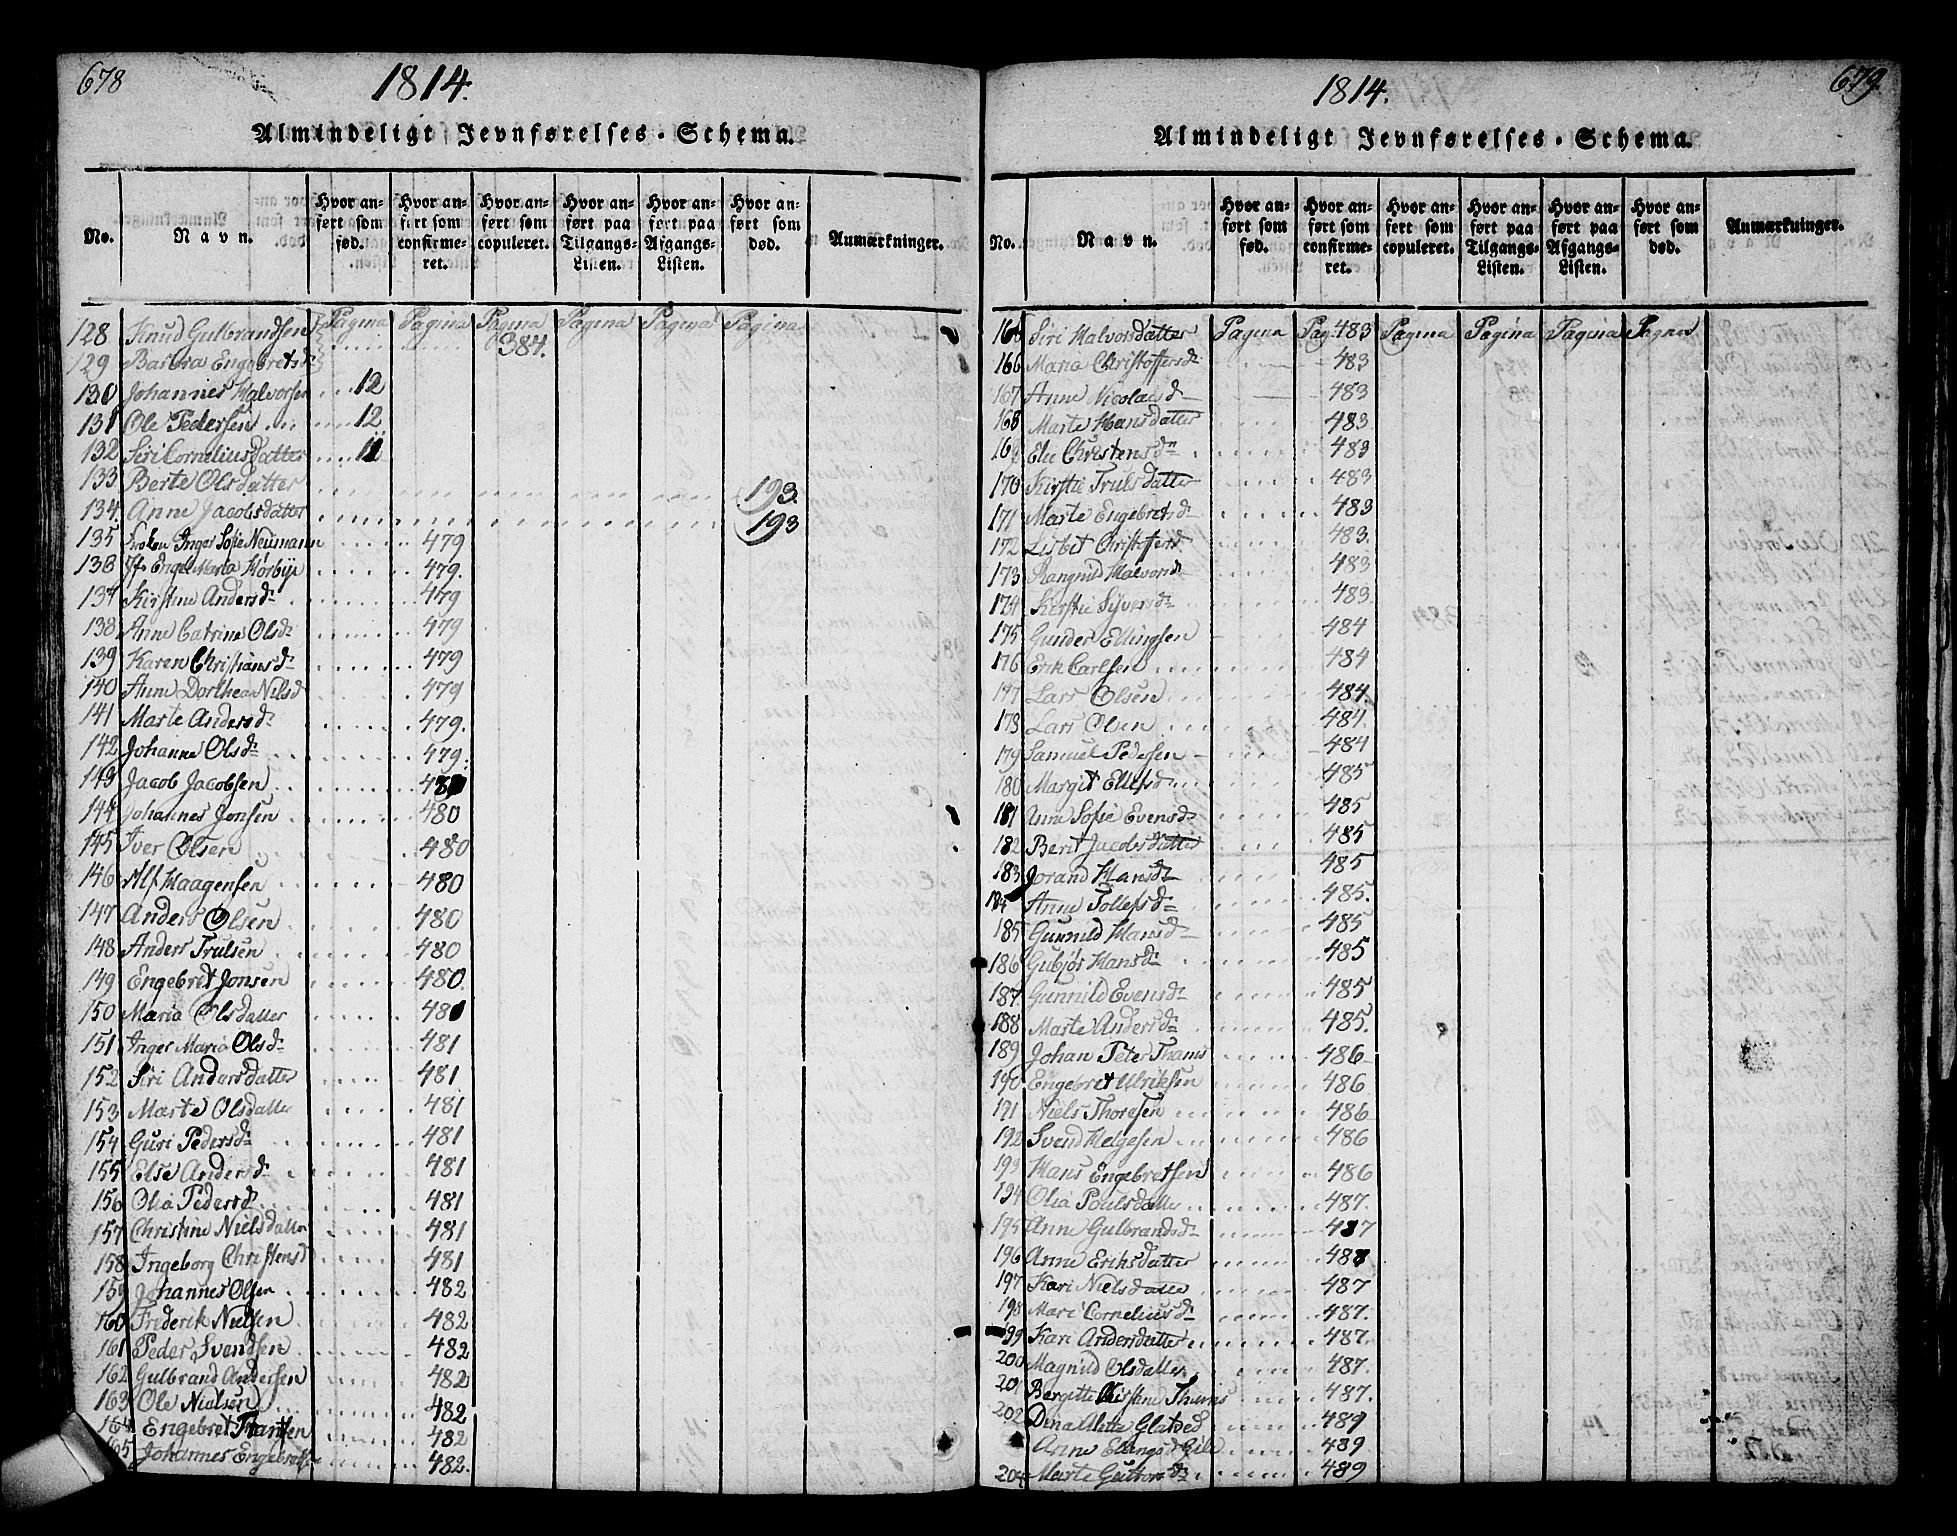 678
1814.
Almindeligt Jevnførelses-Schema.
No. Navn. Hvor anført som fød. Hvor anført som confirmeret. Hvor anført som copuleret. Hvor anført paa Tilgangs-Listen. Hvor anført paa Afgangs-Listen. Hvor anført som død. Anmærkninger.
128 Knud Gulbrandsen Pagina Pagina Pagina Pagina Pagina Pagina
129 Barbra Engebretsd 384.
130 Johannes Halvorsen 12
131 Ole Pedersen 12
132 Siri Corneliusdatter 11
133 Berte Olsdatter 193.
134. Anne Jacobsdatter 193
135 Frøken Inger Sofie Neumann 479
136 Jfr Engel Maria Korbye 479.
137 Kirstine Andersd 479
138 Anne Catrine Olsd 479
139 Karen Christiansd 479
140 Anne Dorthea Nilsd 479
141 Marte Andersd 479.
142 Johanne Olsd 479.
143 Jacob Jacobsen 480
144 Johannes Jonsen 480
145 Iver Olsen 480
146 Alf Haagensen 480
147 Anders Olsen 480
148 Anders Trulsen 480
149 Engebret Jonsen 480.
150 Maria Olsdatter 481
151 Inger Maria Olsd 481
152 Siri Andersdatter 481
153 Marte Olsdatter 481
154 Guri Pedersd 481
155 Else Andersd 481
156 Olia Pedersd 481
157 Christine Nielsdatter 481
158 Ingeborg Christensd 481
159 Johannes Olsen 482
160 Friderik Nielsen 482
161 Peder Svendsen 482
162 Gulbrand Andersen 482
163 Ole Nielsen 482
164 Engebret Hansen 482
165 Johannes Engebretsen 482.
679
1814.
Almindeligt Jevnførelses-Schema.
No. Navn. Hvor anført som fød. Hvor anført som confirmeret. Hvor anført som copuleret. Hvor anført paa Tilgangs-Listen. Hvor anført paa Afgangs-Listen. Hvor anført som død. Anmærkninger.
Siri Halvorsdatter Pagina Pag. 483 Pagina Pagina Pagina Pagina
166 Maria Christoffersd 483
167 Anne Nicolaisd 483
168 Marte Hansdatter 483
169 Elie Christensd 483
170 Kirstie Trulsdatter 483
171 Marte Engebretsd 483
172 Lisbet Christoffersd 483.
173 Rangnild Halvorsd 483
174 Kirstie Syversd 483.
175 Gunder Ellingsen 484
176 Erik Carlsen 484
177 Lars Olsen 484.
178 Lars Olsen 484.
179 Samuel Pedersen 484
180 Margit Ellefsd 485
181 Anne Sofie Evensd 485
182 Berit Jacobsdatter 485
183 Jorand Hansd 485
184 Anne Tollefsd 485.
185 Gunnild Hansd 485
186 Gubjør Hansd 485
187 Gunnild Evensd 485
188 Marte Andersd 485.
189 Johan Peter Thams 486
190 Engebret Ulriksen 486
191 Niels Thoresen 486
192 Svend Helgesen 486
193 Hans Engebretsen 486
194 Olia Poulsdatter 487.
195 Anne Gulbrandsd 487
196 Anne Eriksdatter 487
197 Kari Nielsdatter 487
198 Mari Corneliusd 487.
199 Kari Andersdatter 487.
200 Magnild Olsdatter 487.
201 Bergitte Kirstine Thams 487.
202 Dina Mette Glatved 489
Anne Ellingsd 489
204 Marte Guttormsd 489